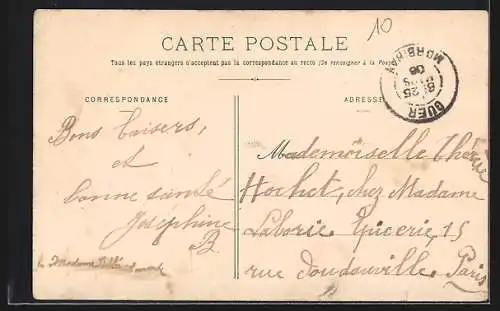 10
CARTE POSTALE
Tous les pays étrangers n'acceptent pas la correspondance au recto (Se renseigner à la Poste)
CORRESPONDANCE
ADRESSE
GUER
MORBIHAN
25
06
Bons baisers,
et
bonne santé
Joséphine
B
Mademoiselle Thérèse
Hochet, chez Madame
Laborie. Epicerie, 15
rue doudauville. Paris
Madame